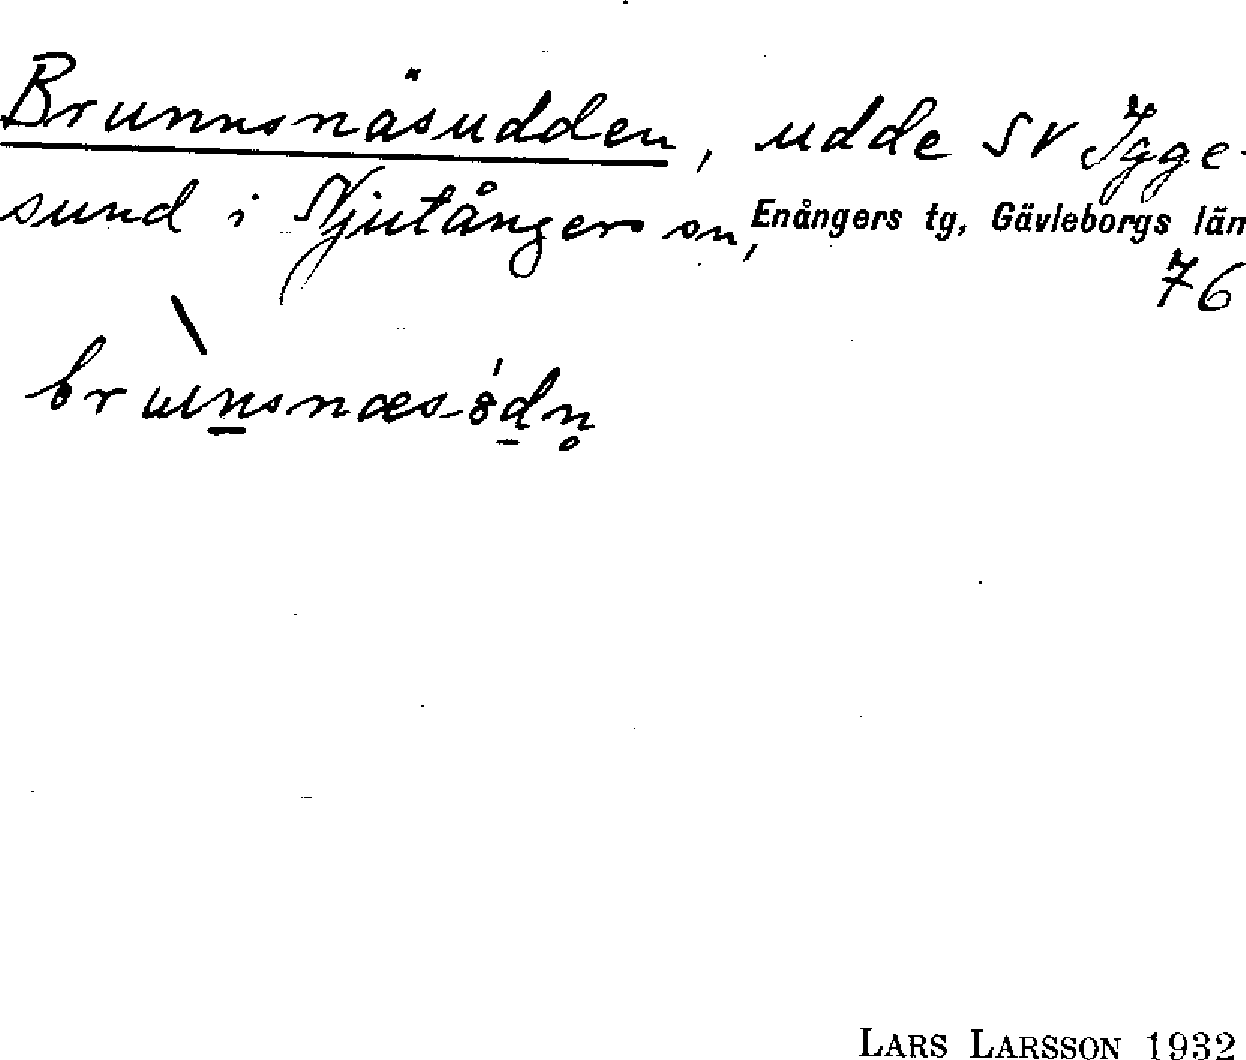 Brunnsnäsudden, udde SV Igge-
sund i Njutångers sn, Enångers tg, Gävleborgs län
76
LARS LARSSON 1932